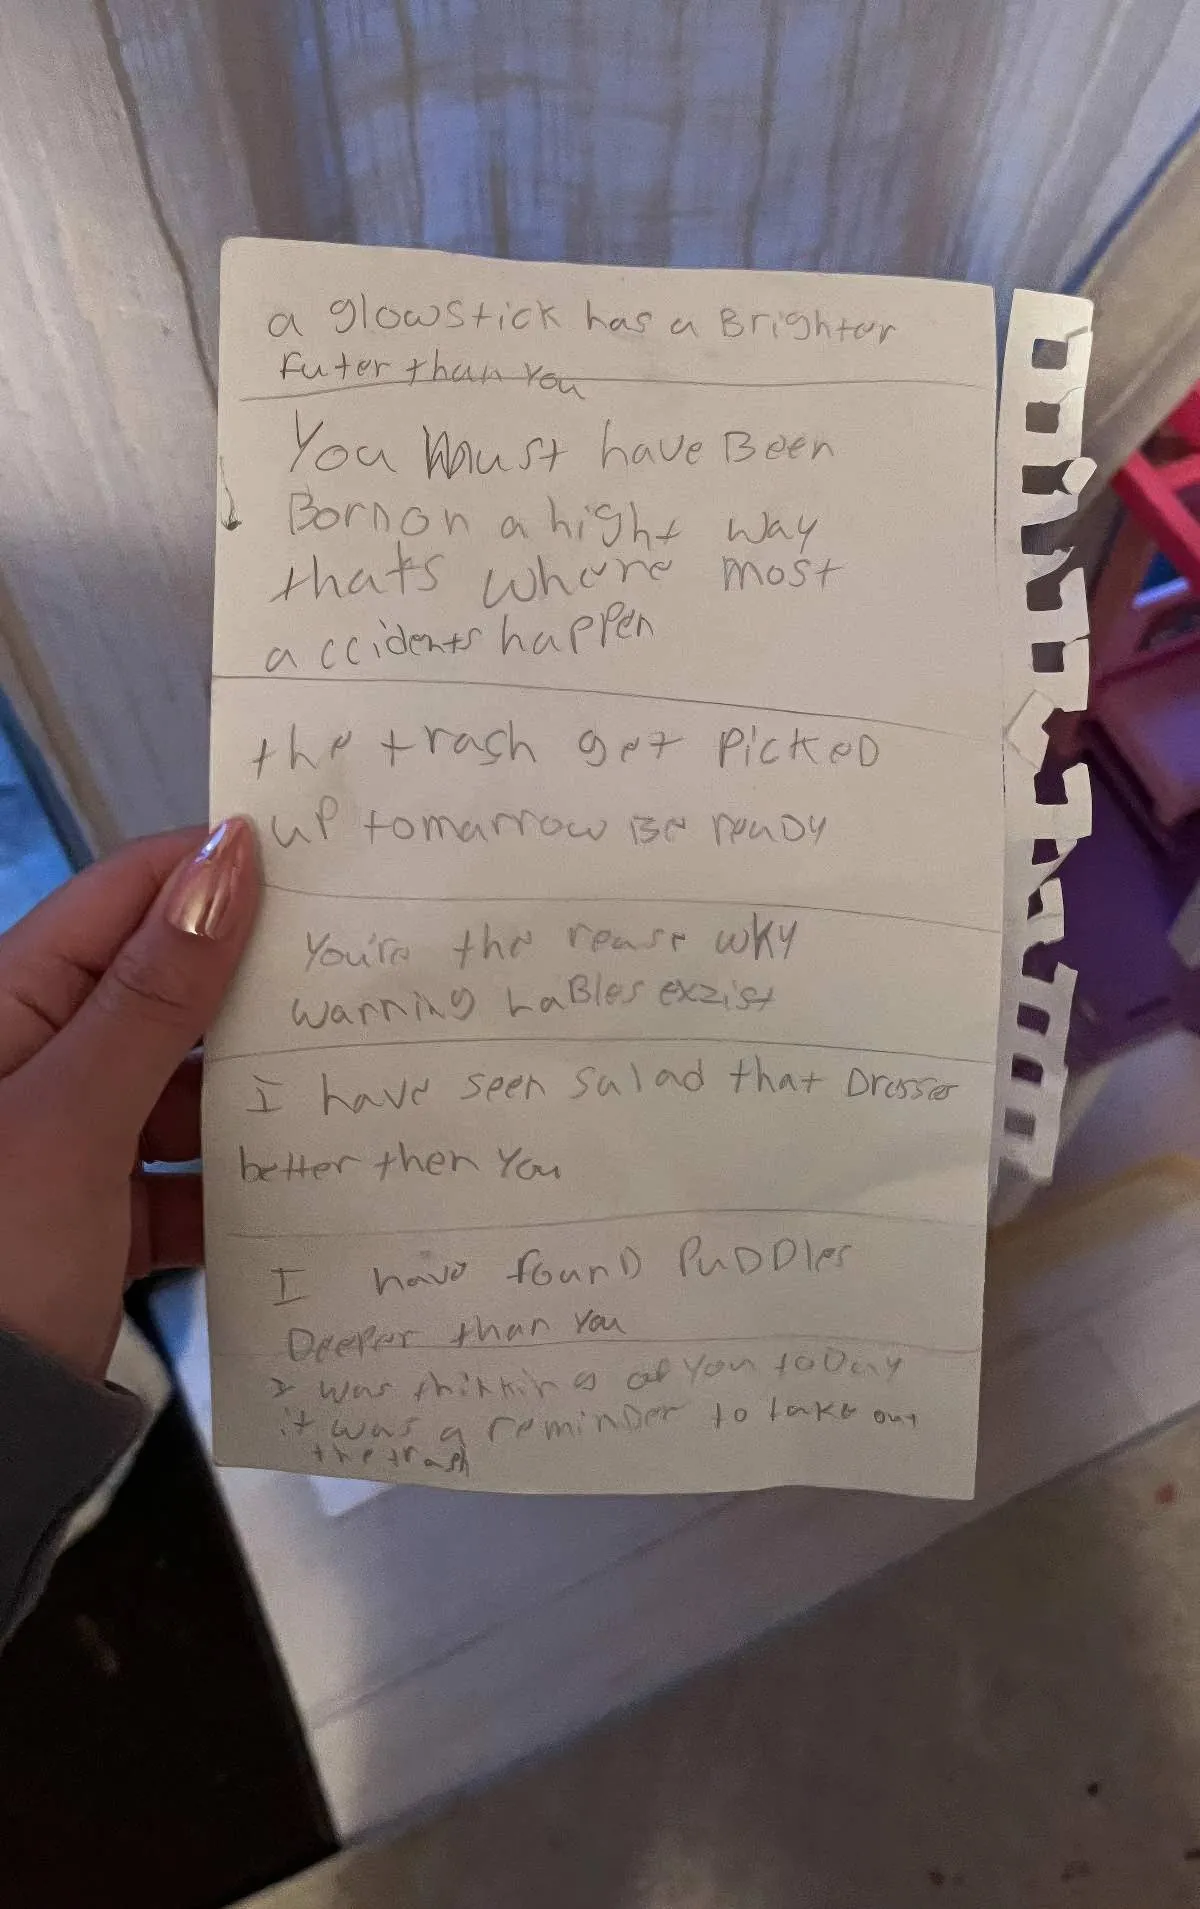 a glowstick has a Brighter
Futer than You
You Must have Been
Born on a hight way
that's where most
accidents happen
the trash get PickeD
up tomarrow Be reaDy
You're the rease wky
warning LaBles exzist
I have seen salad that Dresses
better then You
I have founD PuDDles
Deeper than You
I was thinking of You toDay
it was a reminDer to take out
the trash